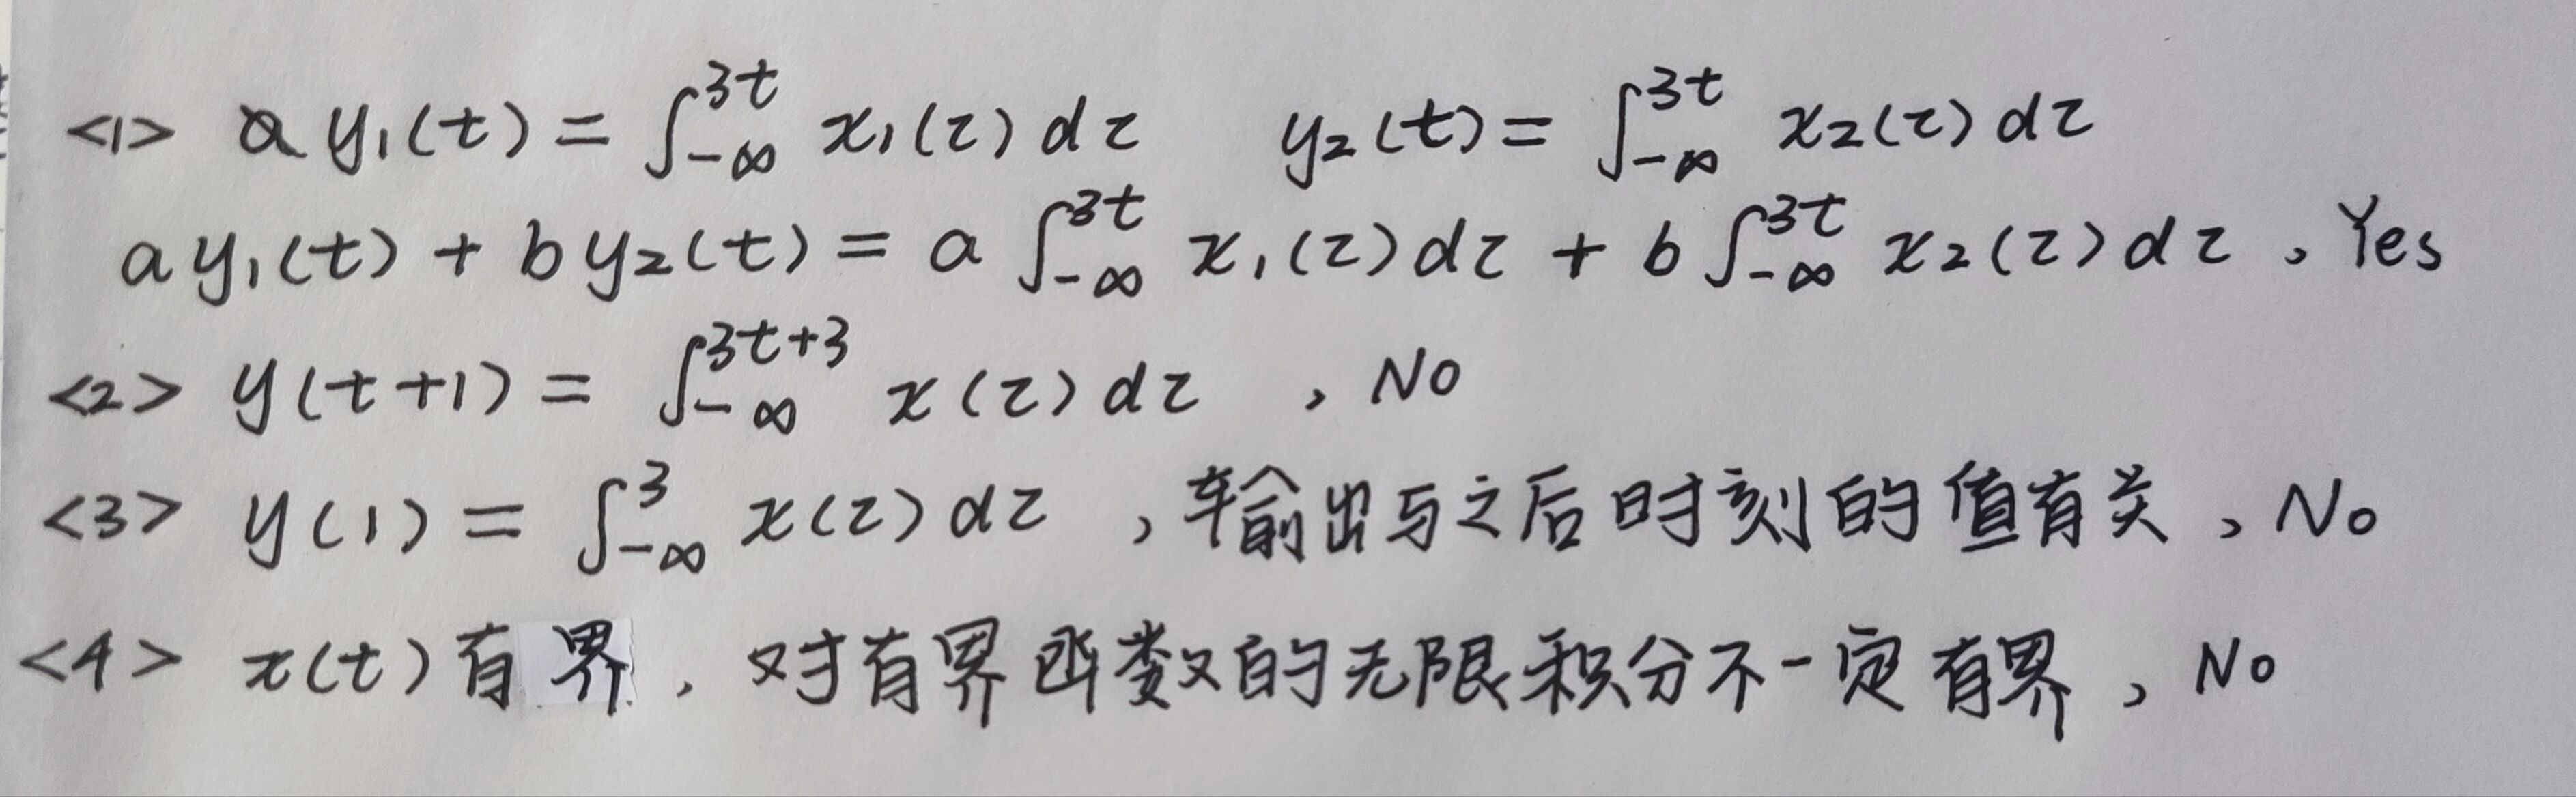 <1> a y₁(t) = ∫_{-∞}^{3t} x₁(τ) dτ y₂(t) = ∫_{-∞}^{3t} x₂(τ) dτ
a y₁(t) + b y₂(t) = a ∫_{-∞}^{3t} x₁(τ) dτ + b ∫_{-∞}^{3t} x₂(τ) dτ , Yes
<2> y(t+1) = ∫_{-∞}^{3t+3} x(τ) dτ , No
<3> y(1) = ∫_{-∞}^{3} x(τ) dτ , 输出与之后时刻的值有关 , No
<4> x(t) 有界 , 对有界函数的无限积分不一定有界 , No